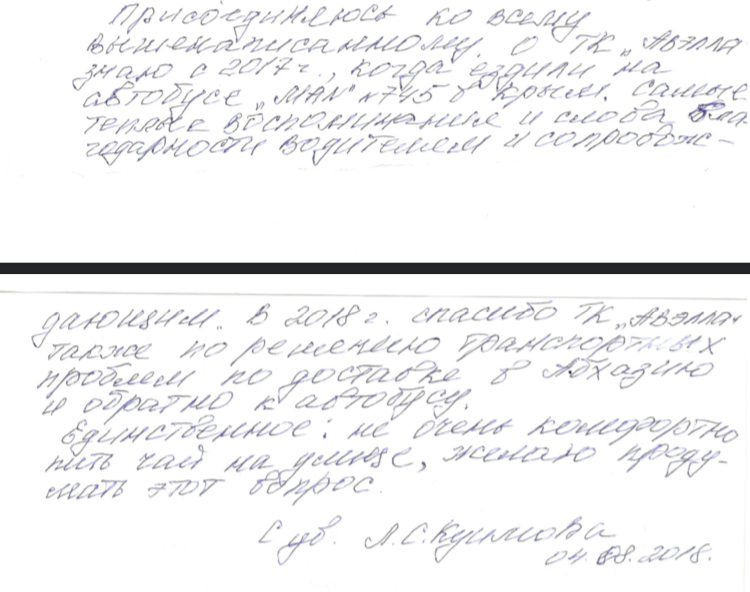 Присоединяюсь ко всему
вышенаписанному. О ТК "Авэлла"
знаю с 2017 г., когда ездили на
автобусе "MAN" №745 в Крым. Самые
теплые воспоминания и слова бла-
годарности водителям и сопровож-
дающим. В 2018 г. спасибо ТК "Авэлла"
также по решению транспортных
проблем по доставке в Абхазию
и обратно к автобусу.
Единственное: не очень комфортно
пить чай на улице, желаю проду-
мать этот вопрос.
С ув. Л.С.
04.08.2018.